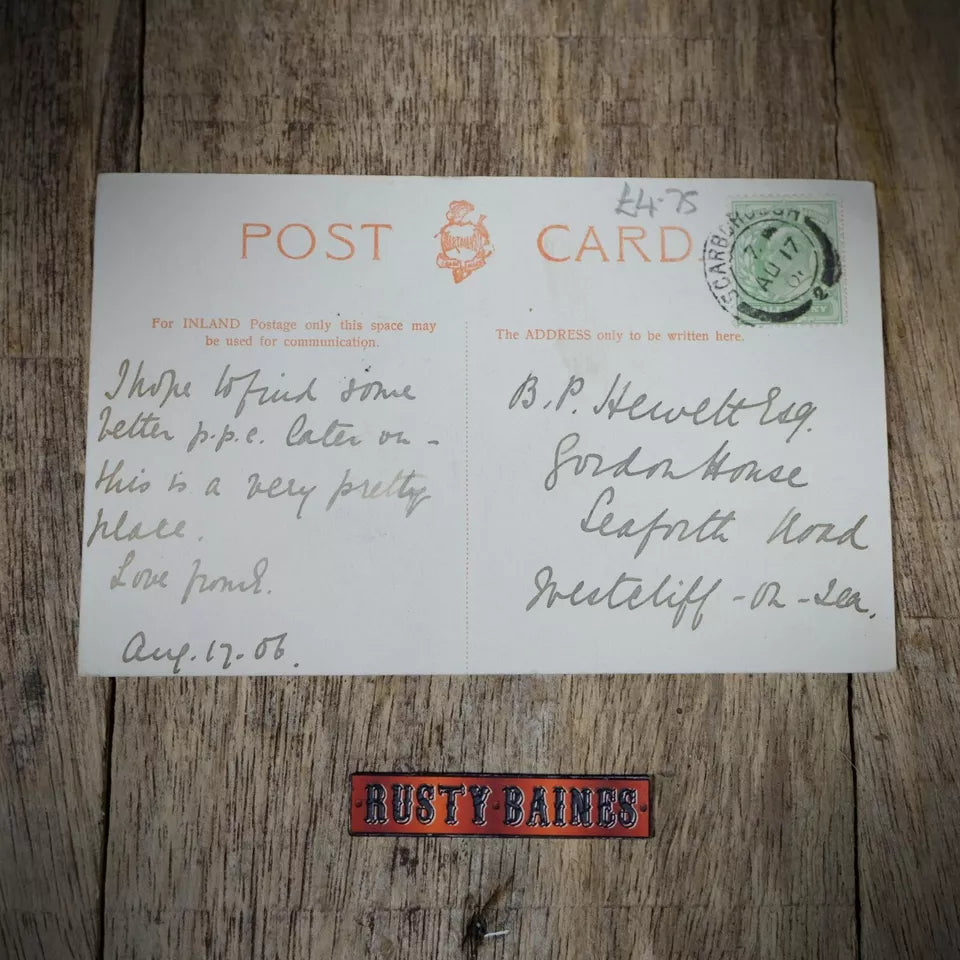 £4.75
POST CARD
SCARBOROUGH
AU 17
2
For INLAND Postage only this space may
be used for communication.
The ADDRESS only to be written here.
I hope to find some
better p.p.c. later on -
this is a very pretty
place.
Love from E.
Aug. 17. 06.
B. P. Hewett Esq.
Gordon House
Seaforth Road
Westcliff - on - Sea.
RUSTY BAINES